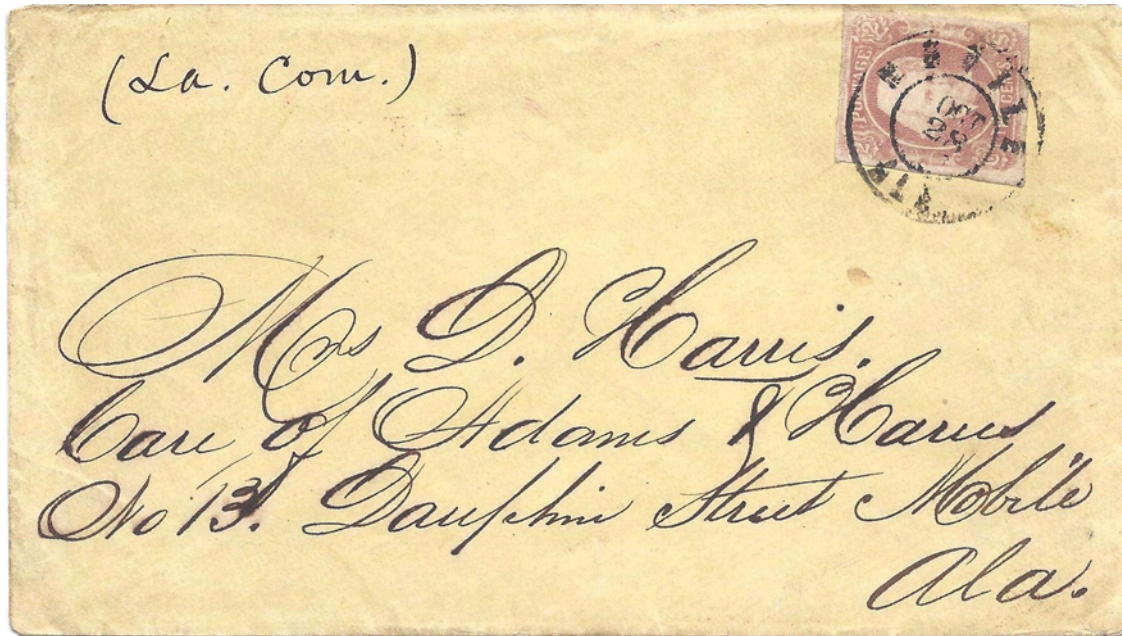 (La. Com.)
POSTAGE
CENTS
MOBILE
OCT
28
ALA
Mrs D. Harris.
Care of Adams & Harris
No 13. Dauphin Street Mobile
Ala.